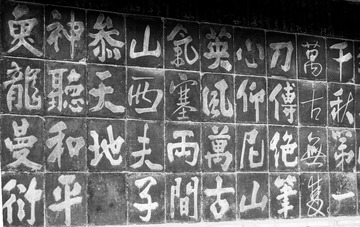 千秋第一
萬古無雙
刀傳絕筆
心仰尼山
英風萬古
氣塞兩間
山西夫子
參天地
神聽和平
魚龍曼衍